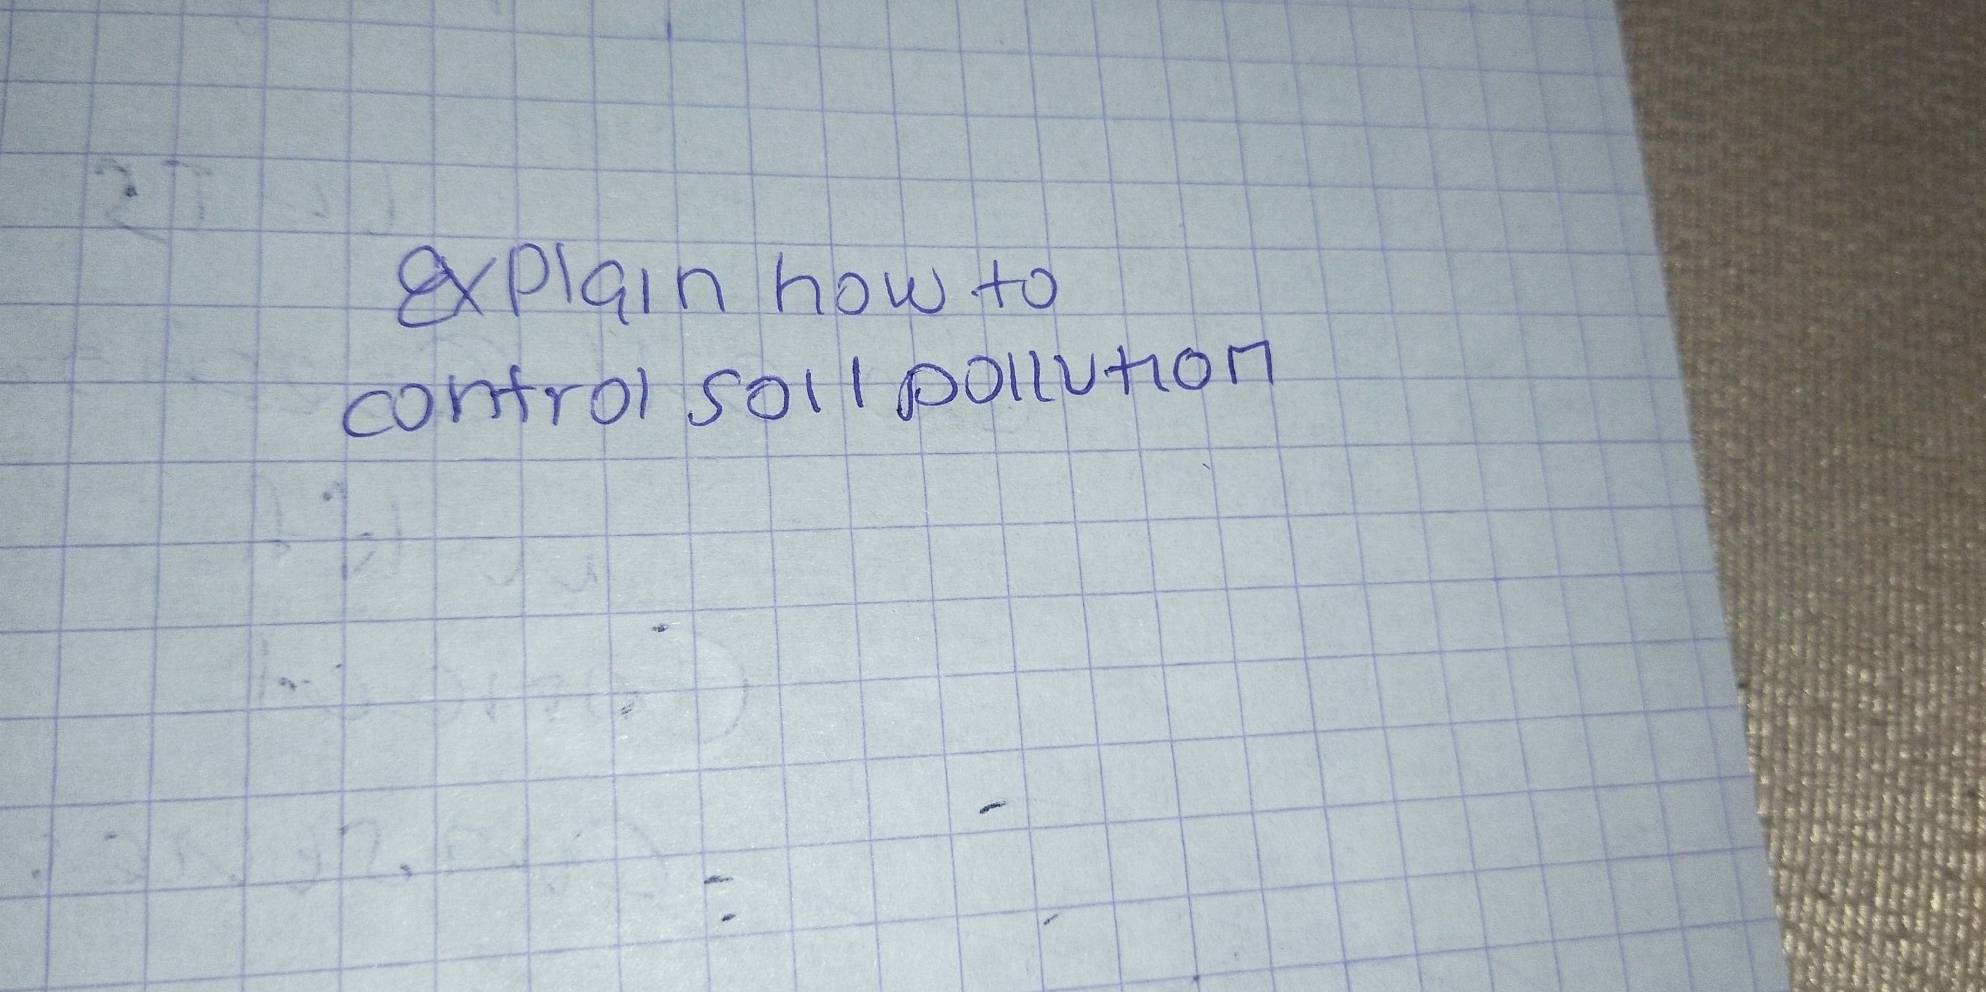 explain how to
control soil pollution